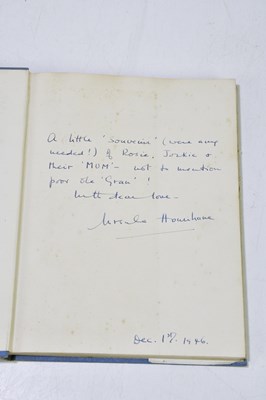 A little 'Souvenir' (were any
needed!) of Rosie, Jackie &
their 'MUM' - not to mention
poor ole 'Gran'!
With dear love -
Ursula
Dec. 1st. 1946.